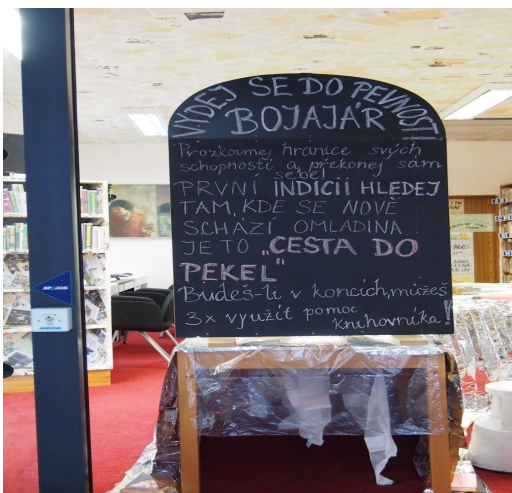 VYDEJ SE DO PEVNOSTI
BOJAJÁR
Prozkoumej hranice svých
schopností a překonej sám
sebe!
PRVNÍ INDICII HLEDEJ
TAM, KDE SE NOVĚ
SCHÁZÍ OMLADINA.
JE TO „CESTA DO
PEKEL"
Budeš-li v koncích, můžeš
3x využít pomoc
knihovníka!